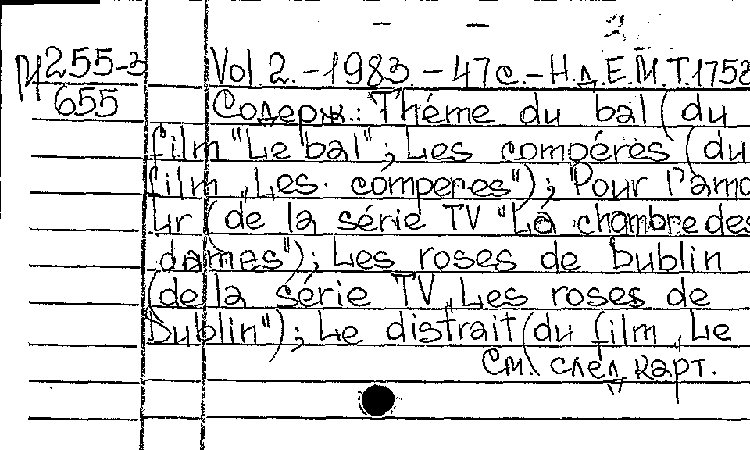 2
И 255-3 Vol 2. - 1983 - 47 с. - Н.д. E.M.T. 1752
655 Содерж.: Théme du bal (du
film "Le bal"; Les compéres (du
film „Les comperes"); Pour l'amo
ur (de la série TV "La chambre des
dames"); Les roses de Dublin
(de la série TV „Les roses de
Dublin"); Le distrait (du film „Le
См. след. карт.